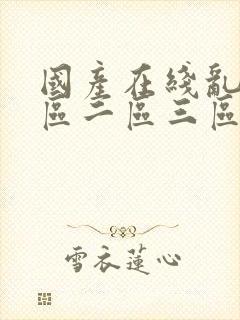 國產在綫亂
區二區三區
雪衣蓮心